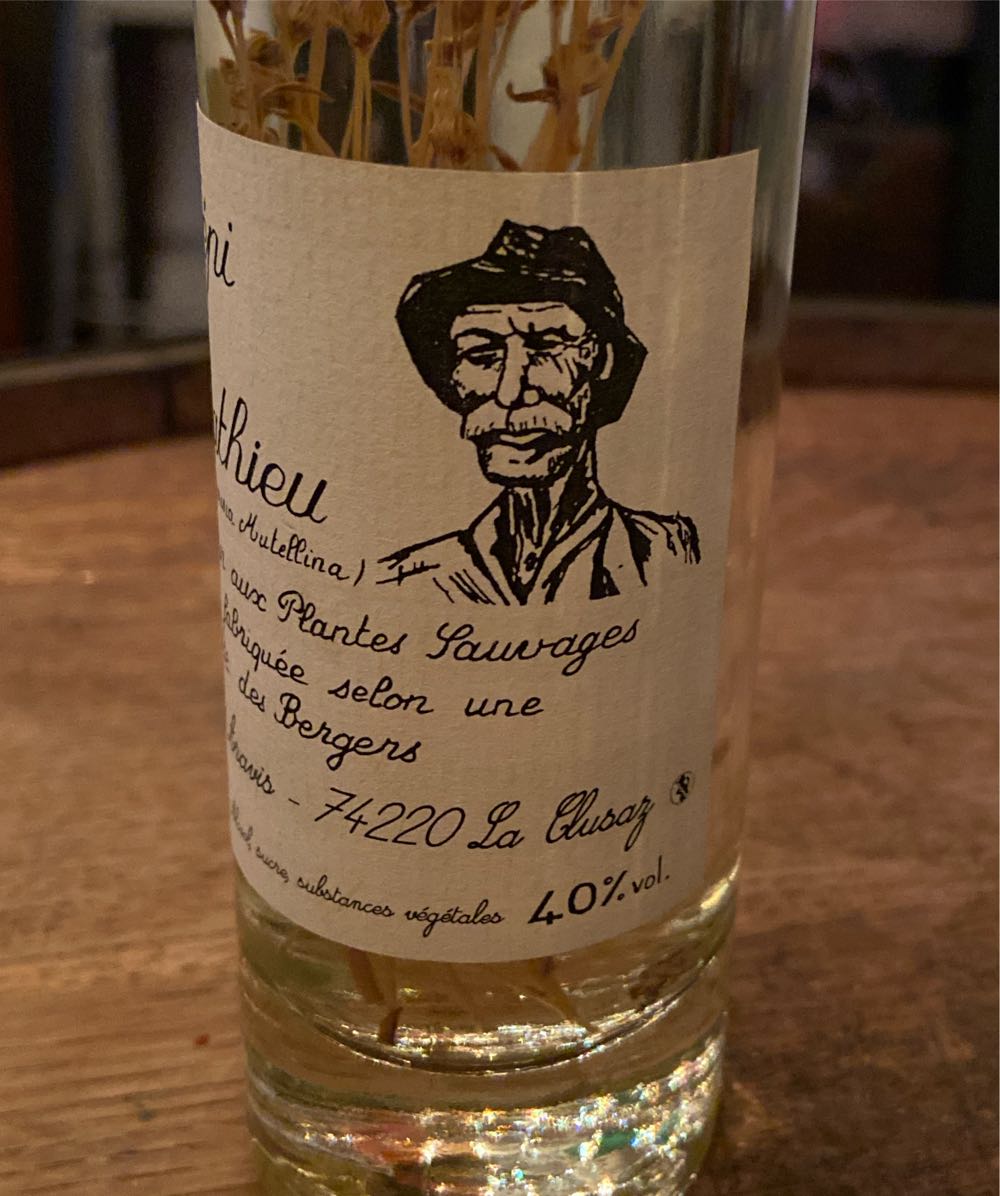 thieu
Mutellina)
aux Plantes Sauvages
fabriquée selon une
des Bergers
74220 La Clusaz
sucre, substances végétales 40% vol.